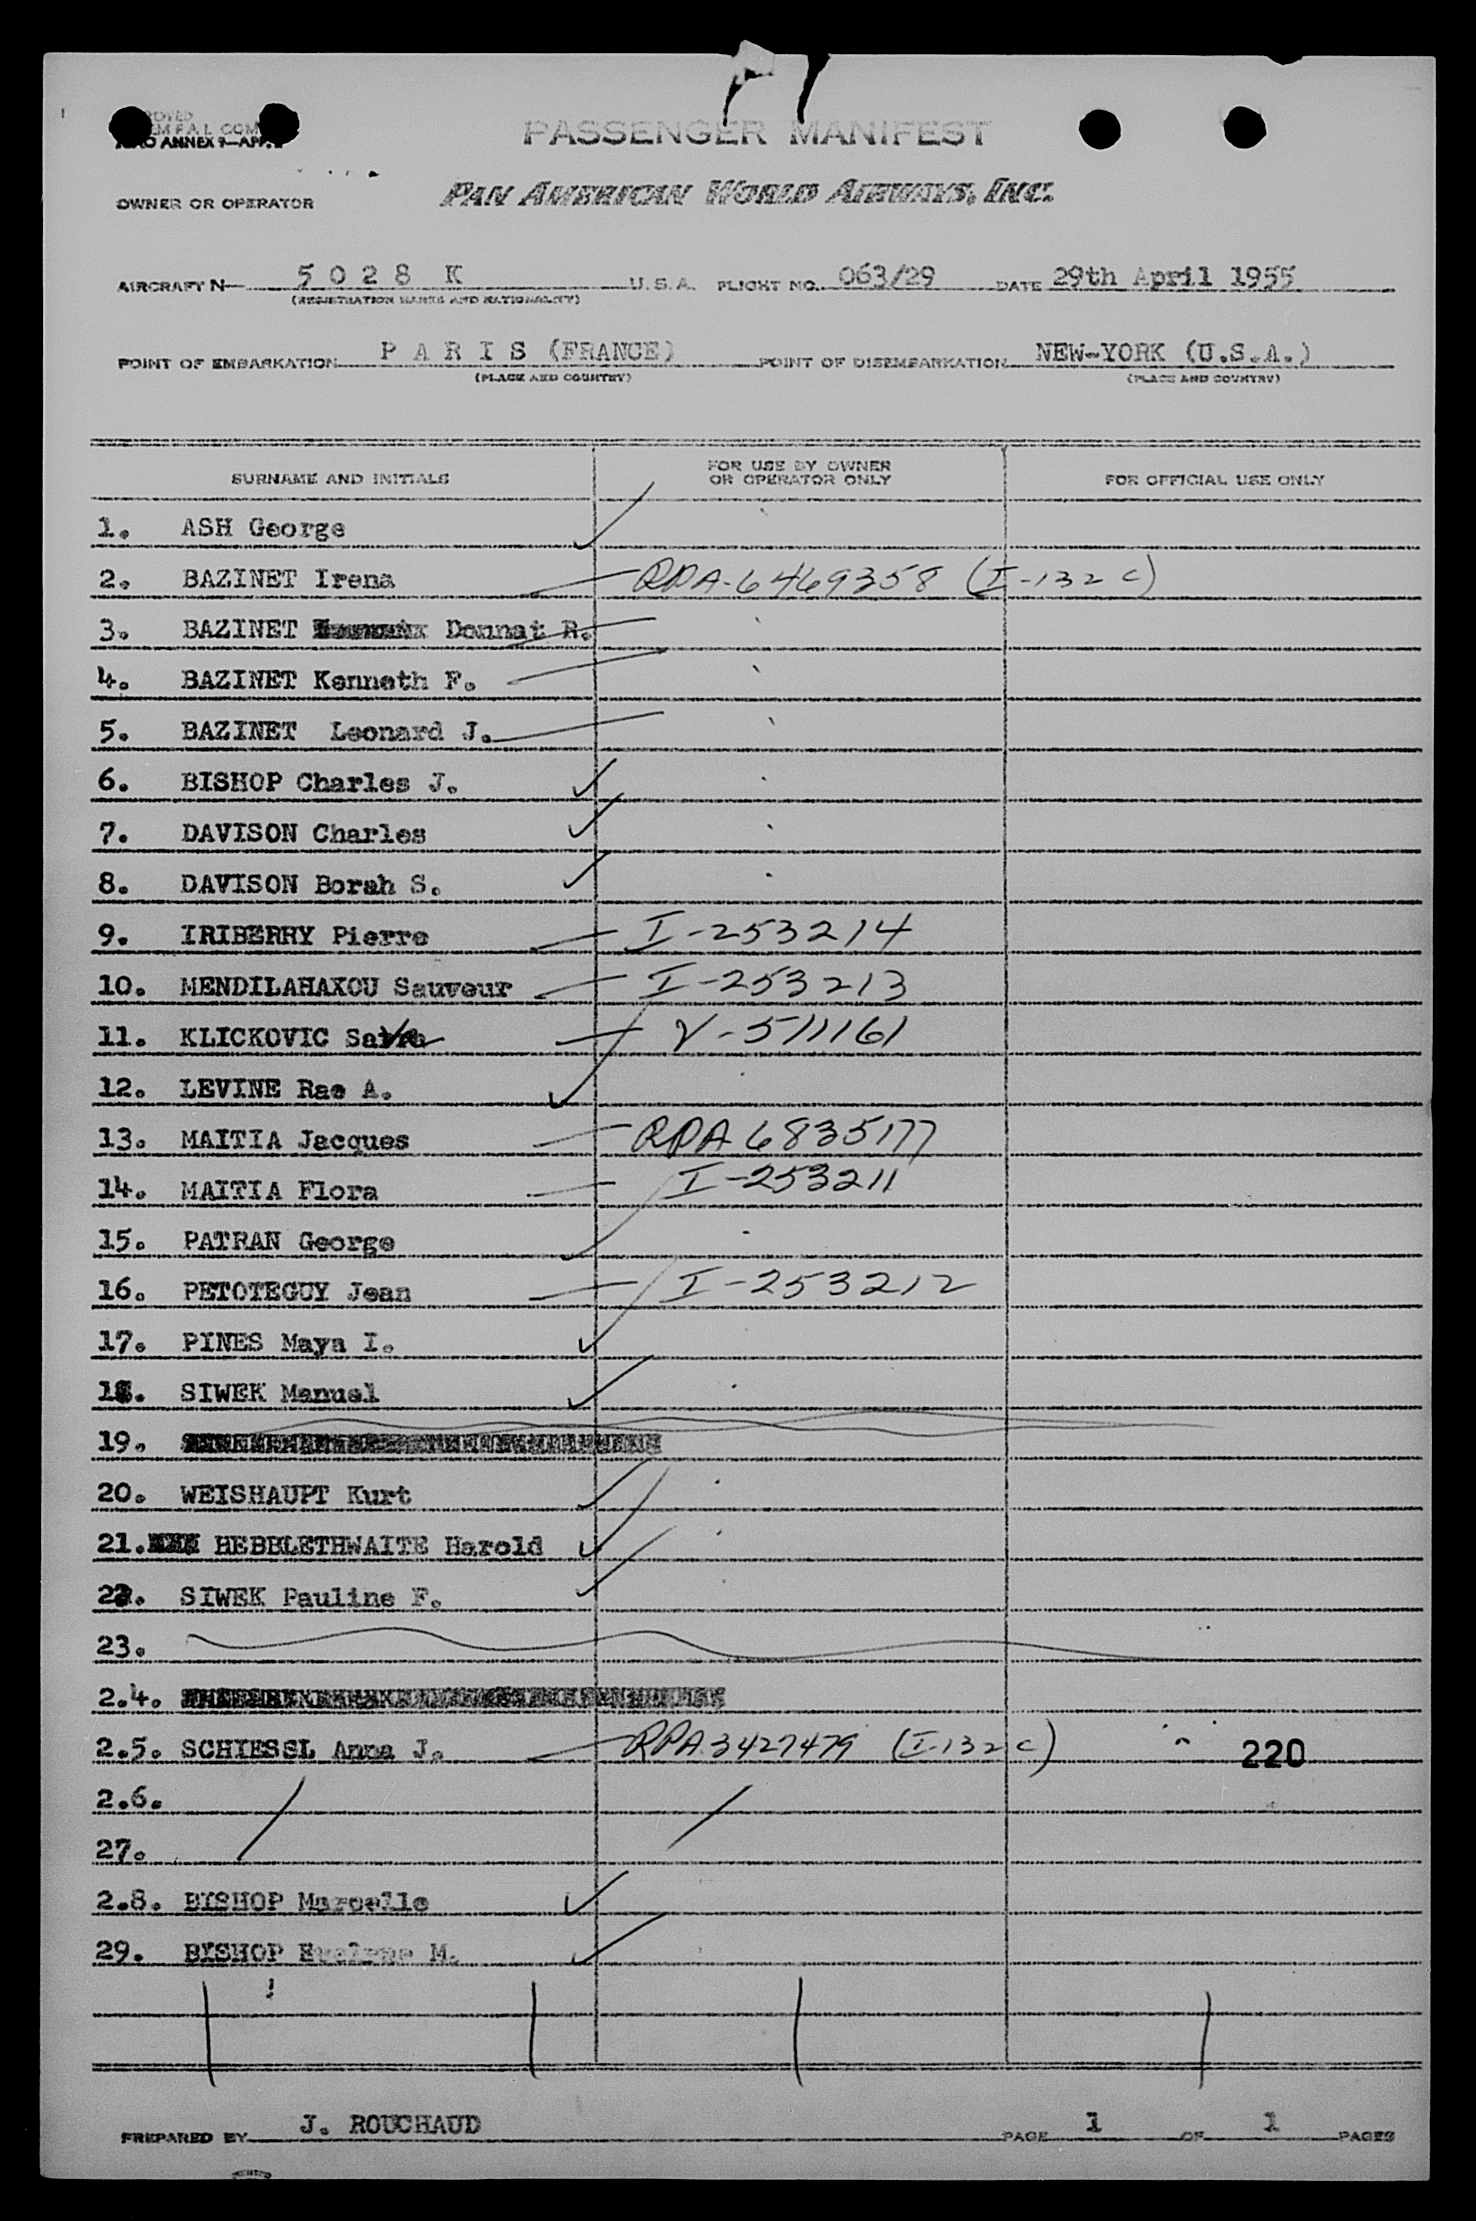 ANNEX 9—APP. 2
PASSENGER MANIFEST
OWNER OR OPERATOR PAN AMERICAN WORLD AIRWAYS, INC.
AIRCRAFT N— 5028 K U.S.A. FLIGHT NO. 063/29 DATE 29th April 1955
(REGISTRATION MARKS AND NATIONALITY)
POINT OF EMBARKATION PARIS (FRANCE) POINT OF DISEMBARKATION NEW-YORK (U.S.A.)
(PLACE AND COUNTRY) (PLACE AND COUNTRY)
SURNAME AND INITIALS FOR USE BY OWNER OR OPERATOR ONLY FOR OFFICIAL USE ONLY
1. ASH George
2. BAZINET Irena RPA-6469358 (I-132 C)
3. BAZINET Donnat R.
4. BAZINET Kenneth F.
5. BAZINET Leonard J.
6. BISHOP Charles J.
7. DAVISON Charles
8. DAVISON Borah S.
9. IRIBERRY Pierre I-253214
10. MENDILAHAXOU Sauveur I-253213
11. KLICKOVIC V-511161
12. LEVINE Rae A.
13. MAITIA Jacques RPA 6835177
14. MAITIA Flora I-253211
15. PATRAN George
16. PETOTEGUY Jean I-253212
17. PINES Maya I.
18. SIWEK Manuel
19.
20. WEISHAUPT Kurt
21. HEBBLETHWAITE Harold
22. SIWEK Pauline F.
23.
2.4.
2.5. SCHIESSL Anna J. RPA 3427479 (I-132 C) 220
2.6.
27.
2.8. BISHOP Marcelle
29. BISHOP M.
PREPARED BY J. ROUCHAUD PAGE 1 OF 1 PAGES